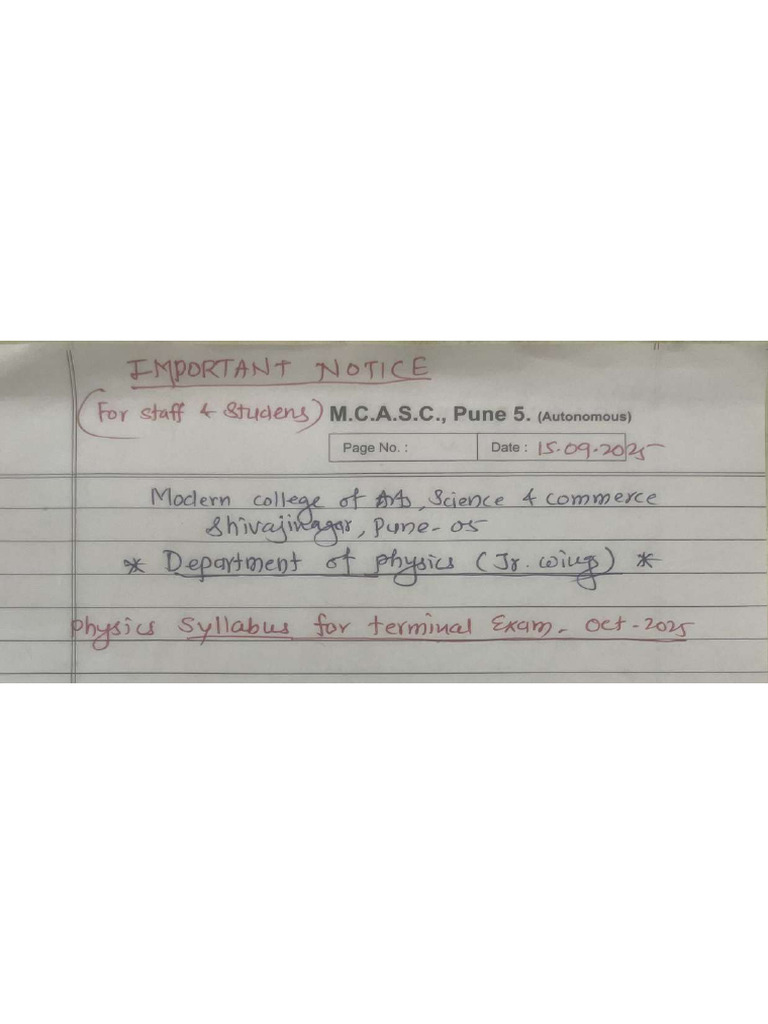 IMPORTANT NOTICE
(For Staff & Studens) M.C.A.S.C., Pune 5. (Autonomous)
Page No. : Date : 15.09.2025
Modern college of Art, Science & commerce
Shivajinagar, Pune-05
* Department of physics (Jr. wing) *
physics Syllabus for terminal Exam- Oct-2025